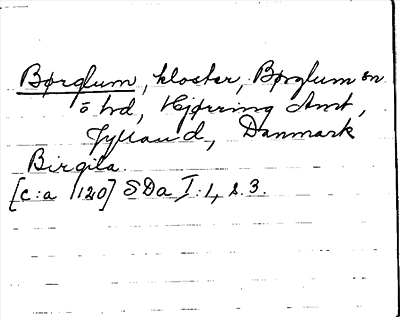 Børglum, kloster, Børglum sn
o hd, Hjørring Amt,
Jylland, Danmark
Birgila
[c:a 1120] SDa I:1, s. 3.